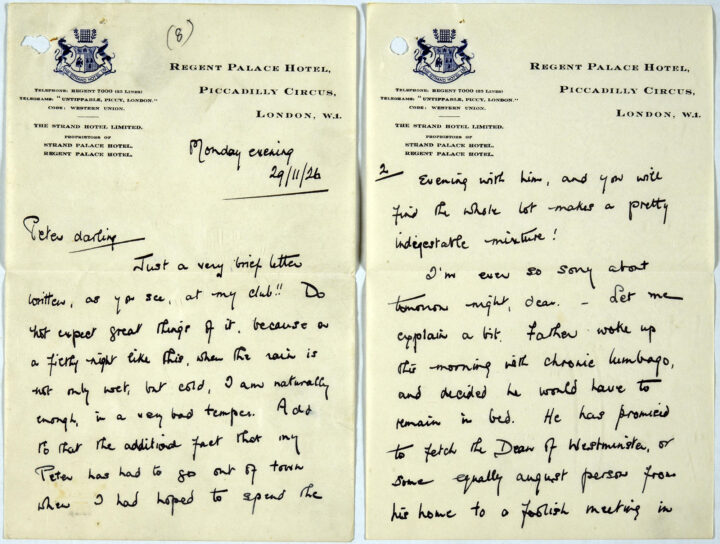 (8)
REGENT PALACE HOTEL,
PICCADILLY CIRCUS,
LONDON, W.1.
TELEPHONE: REGENT 7000 (25 LINES)
TELEGRAMS: "UNTIPPABLE, PICCY, LONDON."
CODE: WESTERN UNION.
THE STRAND HOTEL LIMITED.
PROPRIETORS OF
STRAND PALACE HOTEL.
REGENT PALACE HOTEL.
Monday evening
29/11/26
Peter darling
Just a very brief letter
written, as you see, at my club!! Do
not expect great things of it, because on
a filthy night like this, when the rain is
not only wet, but cold, I am naturally
enough, in a very bad temper. Add
to that the additional fact that my
Peter has had to go out of town
when I had hoped to spend the
REGENT PALACE HOTEL,
PICCADILLY CIRCUS,
LONDON, W.1.
TELEPHONE: REGENT 7000 (25 LINES)
TELEGRAMS: "UNTIPPABLE, PICCY, LONDON."
CODE: WESTERN UNION.
THE STRAND HOTEL LIMITED.
PROPRIETORS OF
STRAND PALACE HOTEL.
REGENT PALACE HOTEL.
2
Evening with him, and you will
find the whole lot makes a pretty
indegestable mixture!
I'm ever so sorry about
tomorrow night, dear. - Let me
explain a bit. Father woke up
this morning with chronic lumbago,
and decided he would have to
remain in bed. He has promised
to fetch the Dean of Westminster, or
some equally august person from
his home to a foolish meeting in